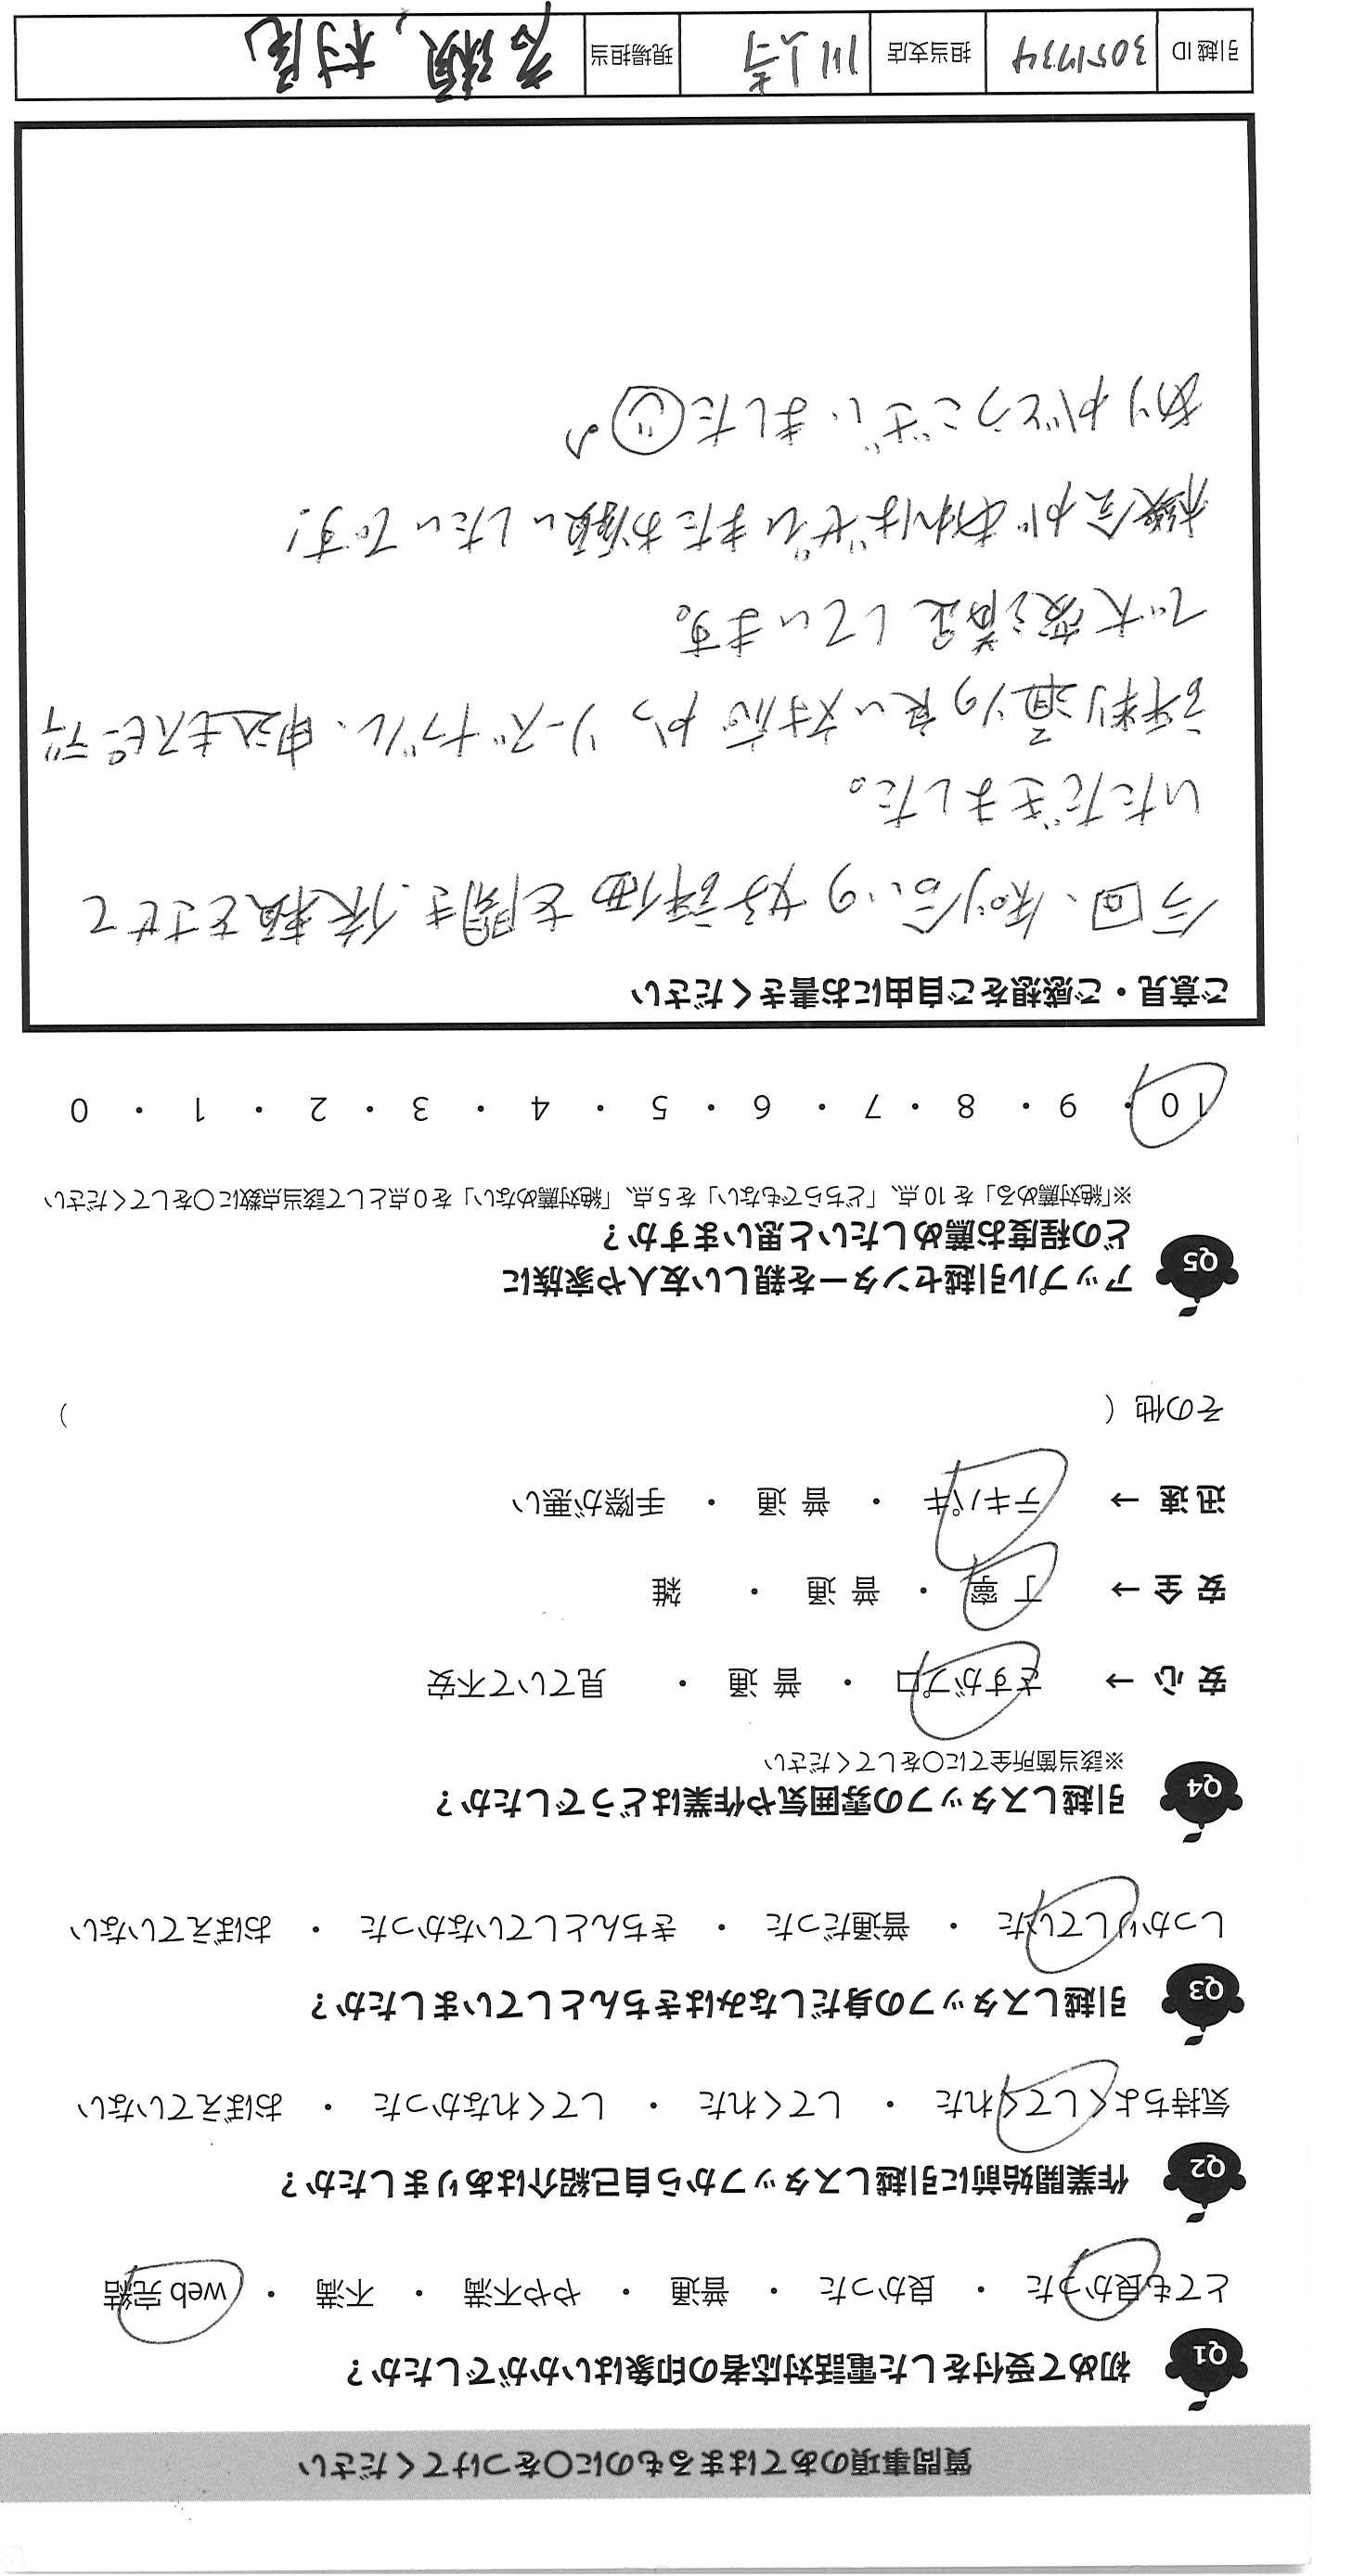 質問事項のあてはまるものに○をつけてください
Q1 初めて受付をした電話対応者の印象はいかがでしたか？
とても良かった ・ 良かった ・ 普通 ・ やや不満 ・ 不満 ・ web 完結
Q2 作業開始前に引越しスタッフから自己紹介はありましたか？
気持ちよくしてくれた ・ してくれた ・ してくれなかった ・ おぼえていない
Q3 引越しスタッフの身だしなみはきちんとしていましたか？
しっかりしていた ・ 普通だった ・ きちんとしていなかった ・ おぼえていない
Q4 引越しスタッフの雰囲気や作業はどうでしたか？
※該当箇所全てに○をしてください
安心 → さすがプロ ・ 普通 ・ 見ていて不安
安全 → 丁寧 ・ 普通 ・ 雑
迅速 → テキパキ ・ 普通 ・ 手際が悪い
その他（ ）
Q5 アップル引越センターを親しい友人や家族に
どの程度お薦めしたいと思いますか？
※「絶対薦める」を 10 点、「どちらでもない」を 5 点、「絶対薦めない」を 0 点として該当点数に○をしてください
10 ・ 9 ・ 8 ・ 7 ・ 6 ・ 5 ・ 4 ・ 3 ・ 2 ・ 1 ・ 0
ご意見・ご感想をご自由にお書きください
今回、知り合いの好評価を聞き、依頼をさせて
いただきました。
評判通りの良い対応かつリーズナブル、申込もスピーディ
で大変満足しています。
機会があればぜひまたお願いしたいです！
ありがとうございました♪
引越 ID 3051734 担当支店 川上寺 現場担当 若瀬, 村尾